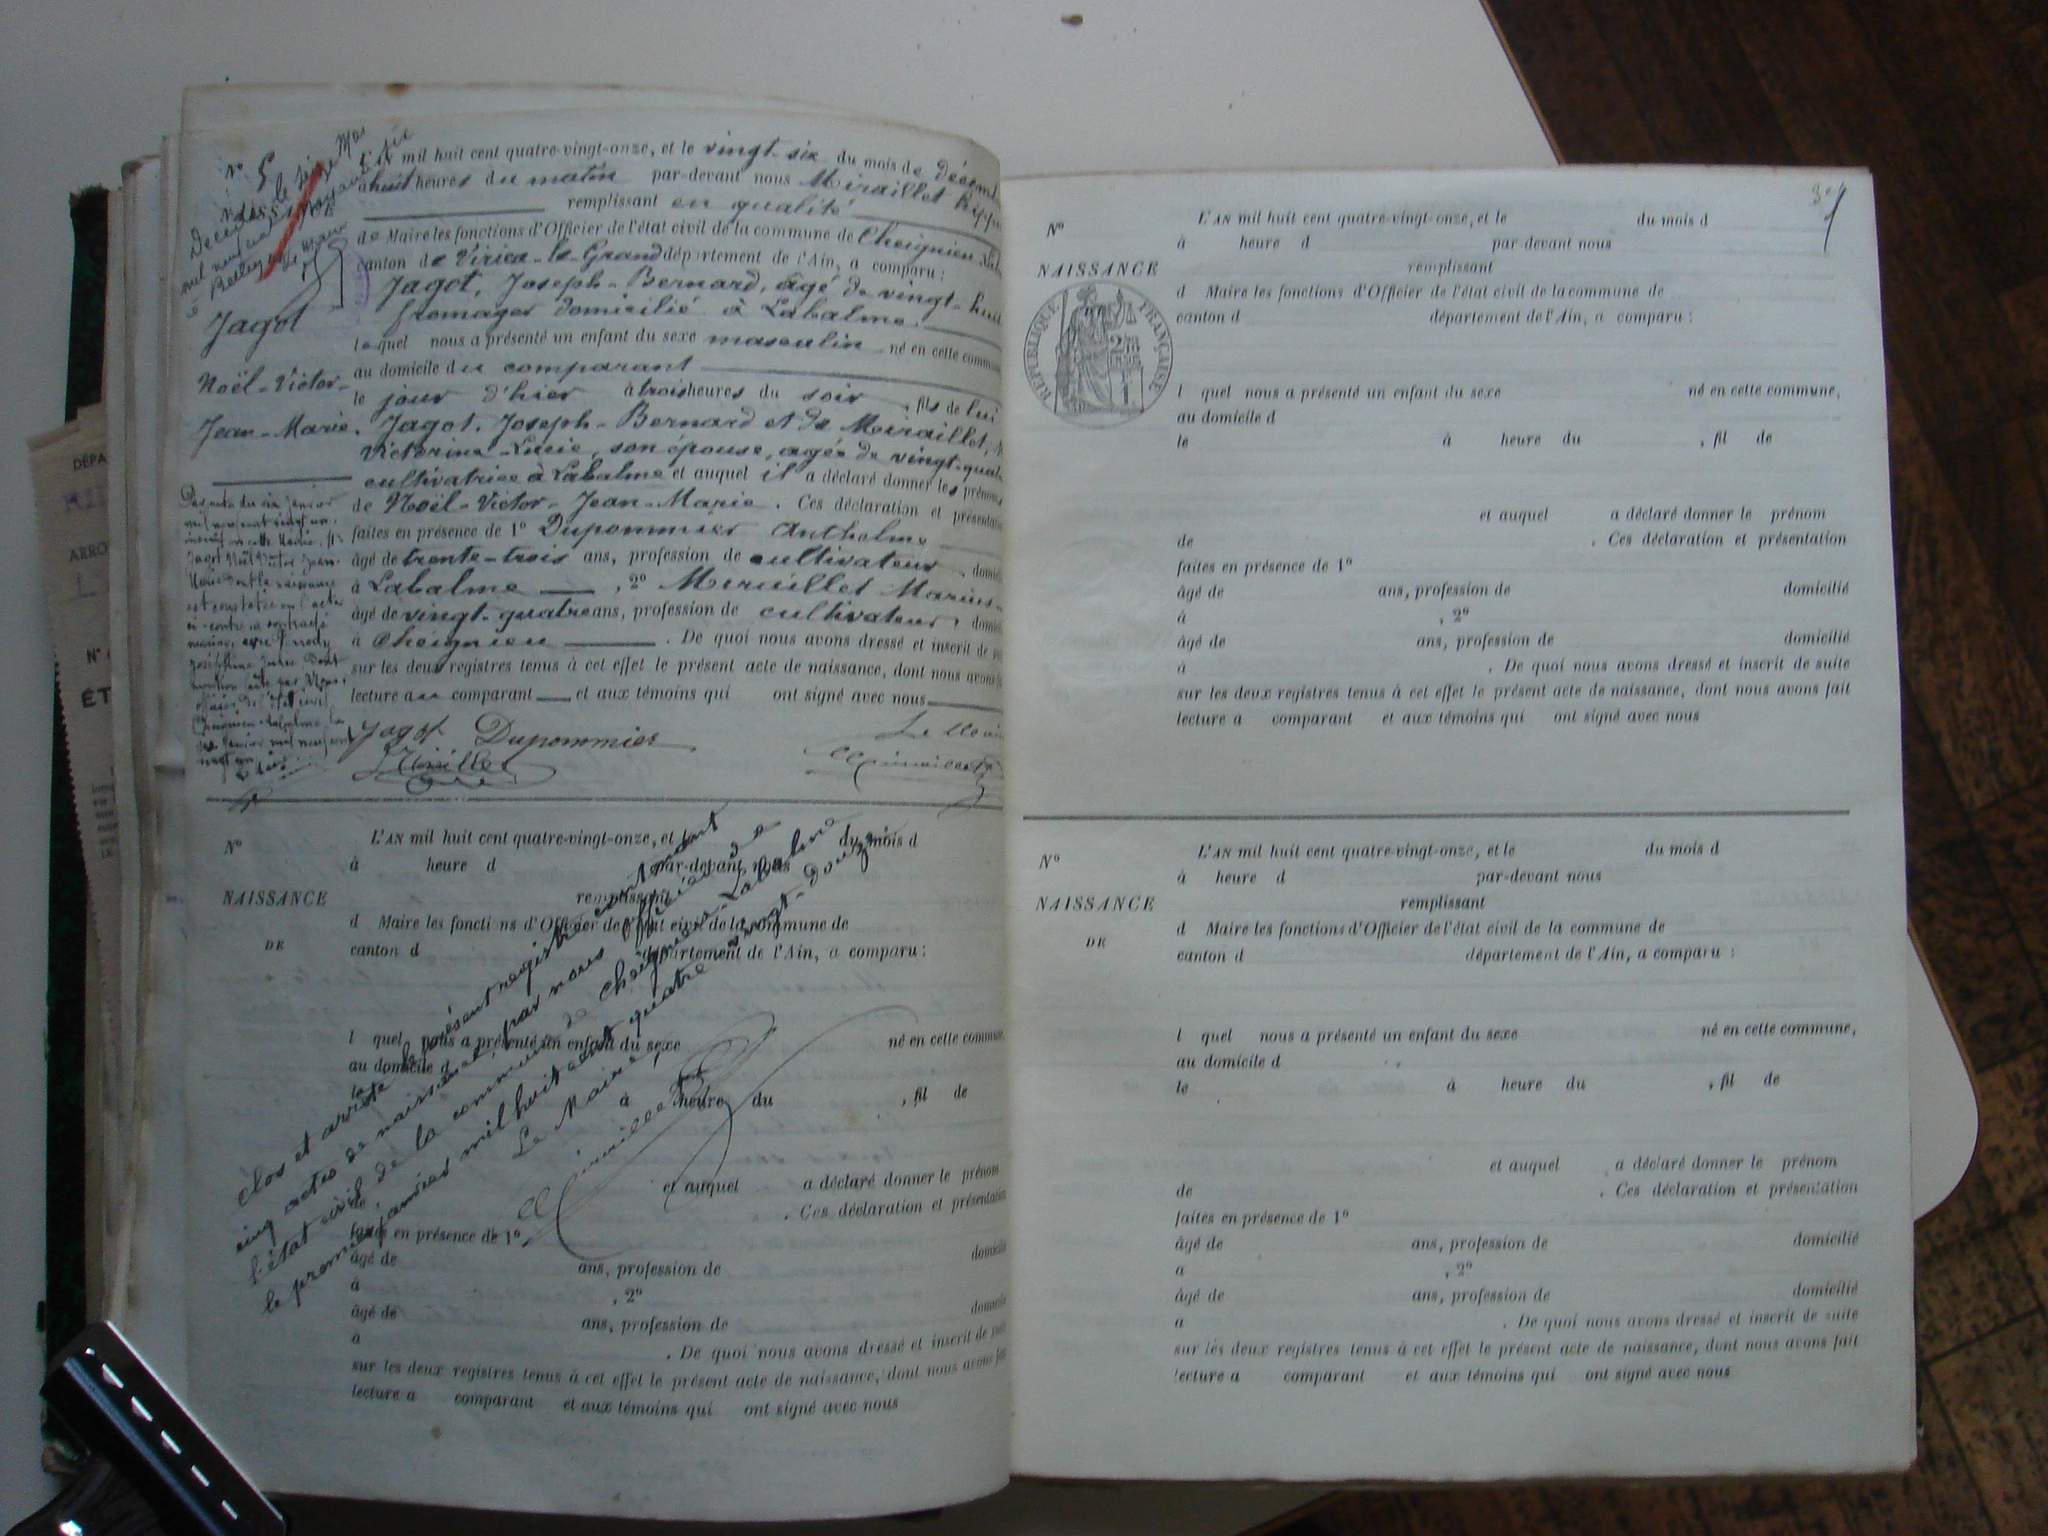 N° 5
NAISSANCE
Décédé le seize Mai
mil neuf cent soixante six
à Belley
Le Maire
Jagot
Noël-Victor-
Jean-Marie.
L'AN mil huit cent quatre-vingt-onze, et le vingt-six du mois de décemb
à huit heures du matin par-devant nous Miraillet Hippo
remplissant en qualité
de Maire les fonctions d'Officier de l'état civil de la commune de Cheignieu-Lab
canton de Virieu-le-Grand département de l'Ain, a comparu :
Jagot, Joseph-Bernard, âgé de vingt-huit
fromager domicilié à Labalme.
lequel nous a présenté un enfant du sexe masculin né en cette commune
au domicile du comparant
le jour d'hier à trois heures du soir, fils de lui
Jagot, Joseph-Bernard et de Miraillet,
Victorine-Lucie, son épouse, agée de vingt-quatre
cultivatrice à Labalme et auquel il a déclaré donner les prénoms
de Noël-Victor-Jean-Marie. Ces déclaration et présentation
faites en présence de 1° Dupommier Anthelme
âgé de trente-trois ans, profession de cultivateur, domici
à Labalme, 2° Miraillet Marius-
âgé de vingt-quatre ans, profession de cultivateur, domici
à Cheignieu. De quoi nous avons dressé et inscrit de su
sur les deux registres tenus à cet effet le présent acte de naissance, dont nous avons f
lecture au comparant et aux témoins qui ont signé avec nous
Jagot Dupommier Le Maire
Miraillet Miraillet
Par acte du six Janvier
mil neuf cent vingt un
inscrit en cette Mairie,
Jagot Noël Victor Jean-
Marie dont la naissance
est constatée en l'acte
ci-contre a contracté
mariage avec
Joséphine Dont
mention faite par Nous,
officier de l'Etat civil
Cheignieu-Labalme le
six Janvier mil neuf cent
vingt un
N° L'AN mil huit cent quatre-vingt-onze, et le du mois d
à heure d par-devant nous
NAISSANCE remplissant
d Maire les fonctions d'Officier de l'état civil de la commune de
DE
canton d département de l'Ain, a comparu :
l quel nous a présenté un enfant du sexe né en cette commune,
au domicile d
le à heure du , fil de
et auquel a déclaré donner le prénom
de . Ces déclaration et présentation
faites en présence de 1°
âgé de ans, profession de domicilié
à , 2°
âgé de ans, profession de domicilié
à . De quoi nous avons dressé et inscrit de suite
sur les deux registres tenus à cet effet le présent acte de naissance, dont nous avons fait
lecture a comparant et aux témoins qui ont signé avec nous
Clos et arrêté le présent registre contenant
cinq actes de naissance, par nous officier de
l'état civil de la commune de Cheignieu-Labalme
le premier janvier mil huit cent quatre vingt-douze.
Le Maire,
Miraillet
N° L'AN mil huit cent quatre-vingt-onze, et le du mois d
à heure d par-devant nous
NAISSANCE remplissant
d Maire les fonctions d'Officier de l'état civil de la commune de
canton d département de l'Ain, a comparu :
RÉPUBLIQUE FRANÇAISE
l quel nous a présenté un enfant du sexe né en cette commune,
au domicile d
le à heure du , fil de
et auquel a déclaré donner le prénom
de . Ces déclaration et présentation
faites en présence de 1°
âgé de ans, profession de domicilié
à , 2°
âgé de ans, profession de domicilié
à . De quoi nous avons dressé et inscrit de suite
sur les deux registres tenus à cet effet le présent acte de naissance, dont nous avons fait
lecture a comparant et aux témoins qui ont signé avec nous
N° L'AN mil huit cent quatre-vingt-onze, et le du mois d
à heure d par-devant nous
NAISSANCE remplissant
d Maire les fonctions d'Officier de l'état civil de la commune de
DE
canton d département de l'Ain, a comparu :
l quel nous a présenté un enfant du sexe né en cette commune,
au domicile d
le à heure du , fil de
et auquel a déclaré donner le prénom
de . Ces déclaration et présentation
faites en présence de 1°
âgé de ans, profession de domicilié
a , 2°
âgé de ans, profession de domicilié
a . De quoi nous avons dressé et inscrit de suite
sur les deux registres tenus à cet effet le présent acte de naissance, dont nous avons fait
lecture a comparant et aux témoins qui ont signé avec nous